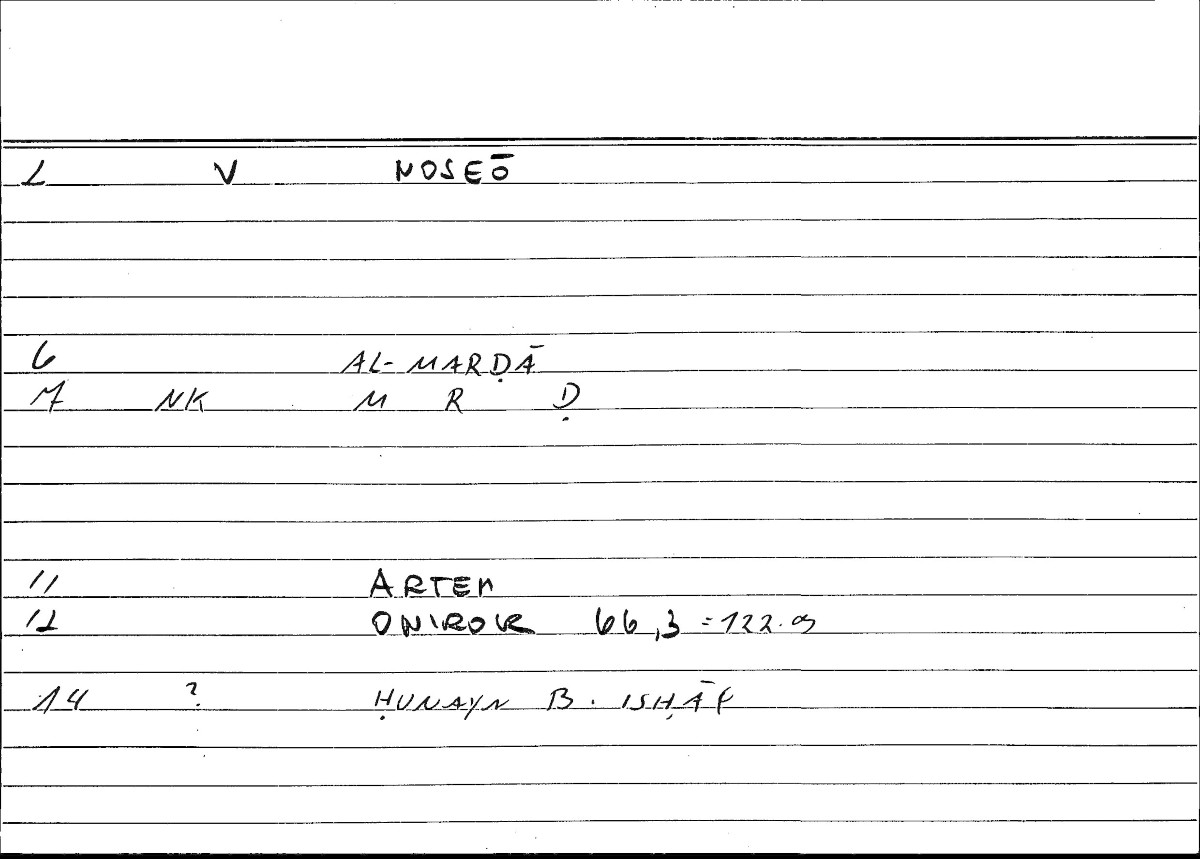 1 V NOSEŌ
6 AL-MARḌĀ
7 NK M R Ḍ
11 ARTEM
12 ONIROK 66,3 =122.9
14 ? ḤUNAYN B. ISḤĀQ